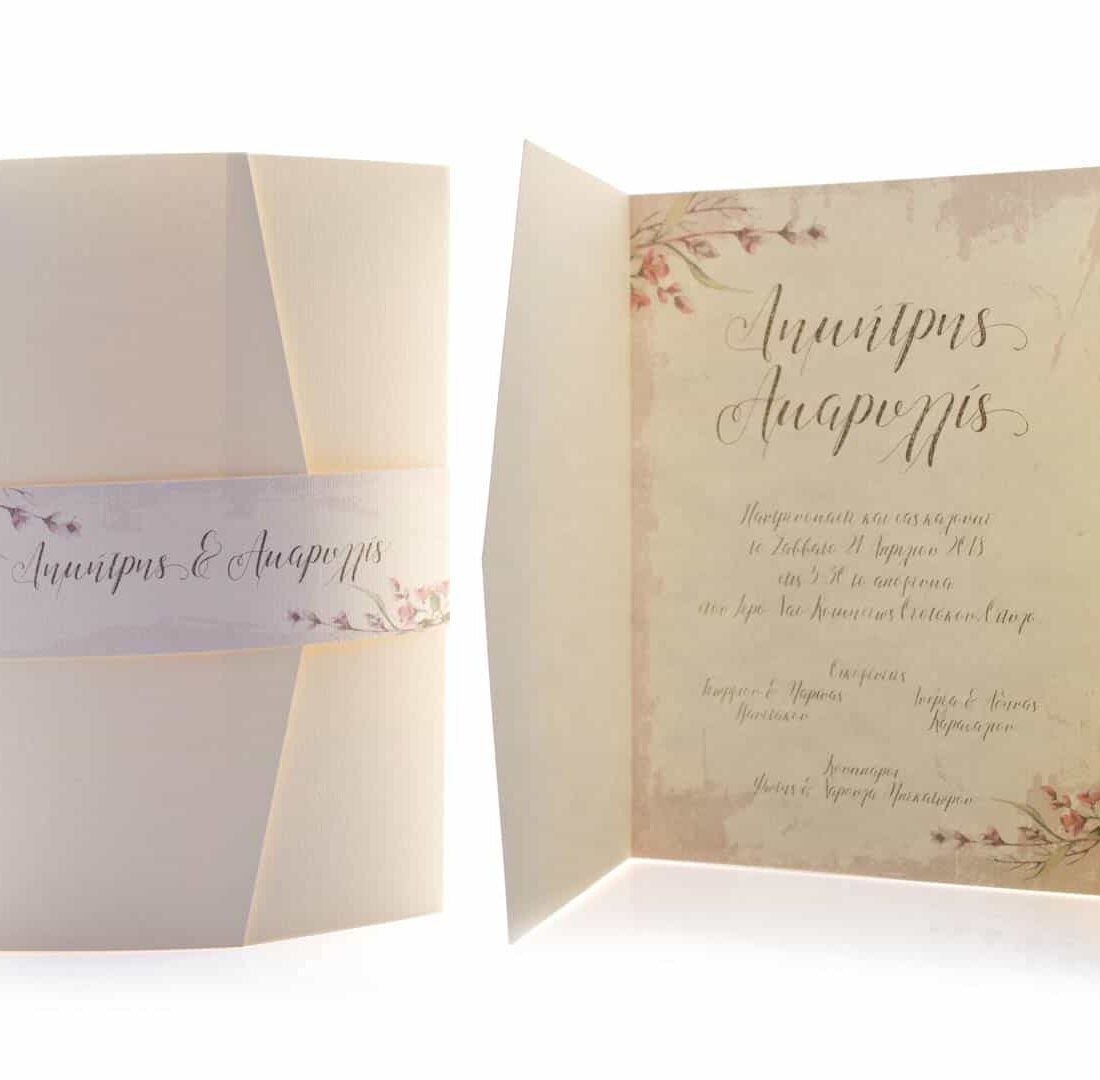 Δημήτρης & Αμαρυλλίς
Δημήτρης
Αμαρυλλίς
Παντρευόμαστε και σας καλούμε
το Σάββατο 21 Απριλίου 2018
στις 5:30 το απόγευμα
στον Ιερό Ναό Κοιμήσεως Θεοτόκου,
Οικογένειες
Γεωργίου & Μαρίνας
&
Κουμπάροι
&